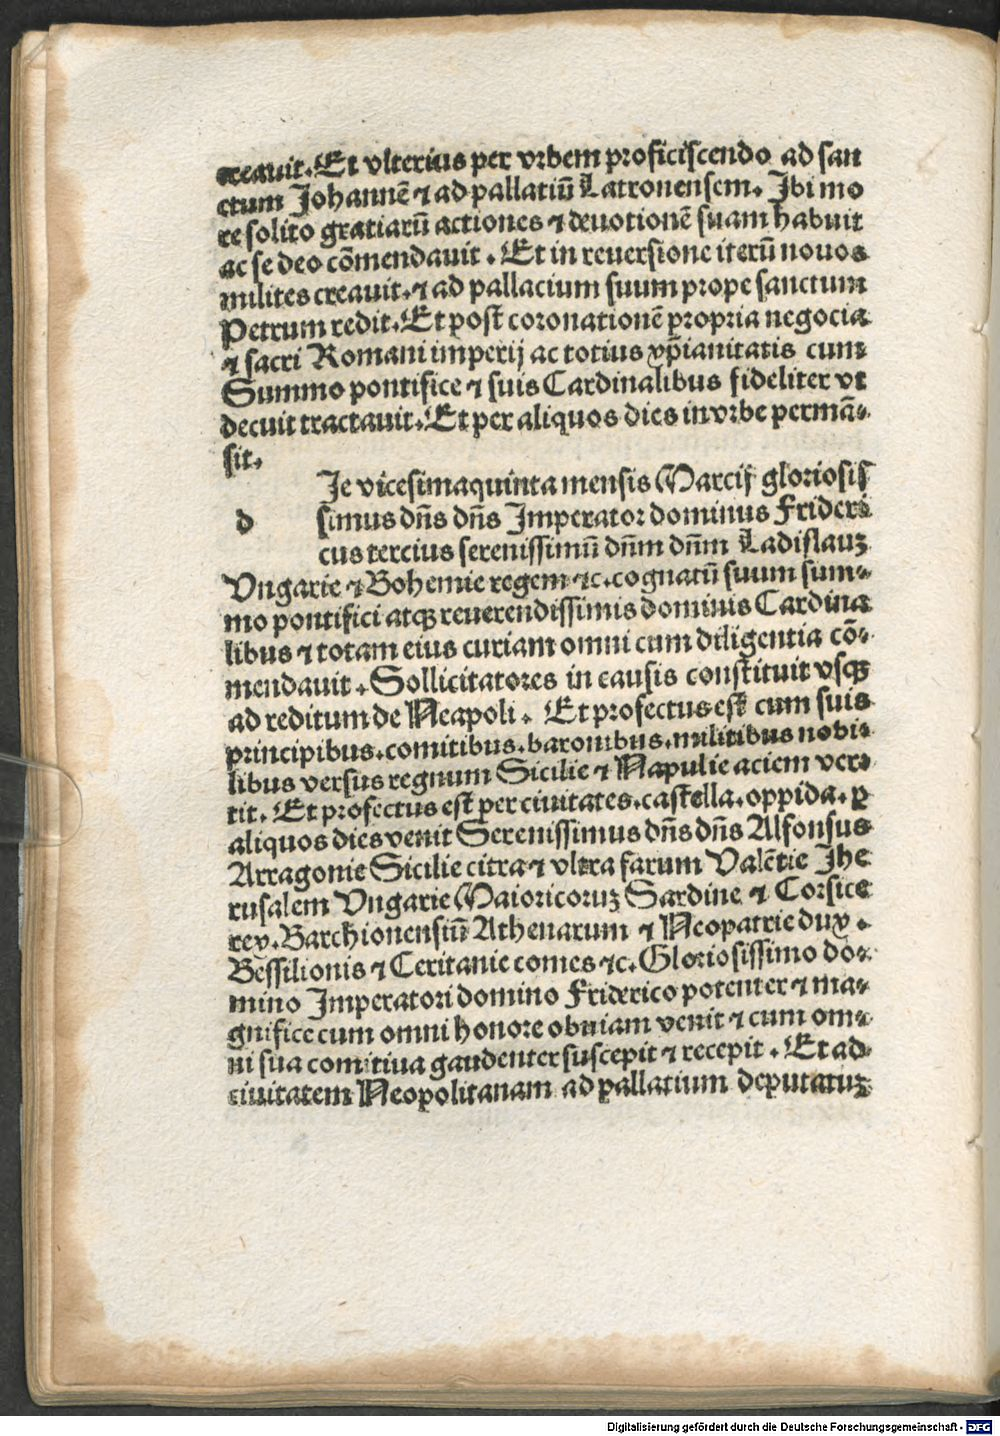 creauit. Et vlterius per vrbem proficiscendo ad san
ctum Johannē ⁊ ad pallatiū Latronensem. Jbi mo
re solito gratiarū actiones ⁊ deuotionē suam habuit
ac se deo cōmendauit. Et in reuersione iterū nouos
milites creauit. ⁊ ad pallacium suum prope sanctum
Petrum redit. Et post coronationē propria negocia
⁊ sacri Romani imperij ac totius xp̄ianitatis cum
Summo pontifice ⁊ suis Cardinalibus fideliter vt
decuit tractauit. Et per aliquos dies in vrbe permā⸗
sit.
Je vicesimaquinta mensis Marcij gloriosis
d simus dn̄s dn̄s Imperator dominus Frideri
cus tercius serenissimū dn̄m dn̄m Ladislauꝫ
Vngarie ⁊ Bohemie regem ⁊c. cognatū suum sum⸗
mo pontifici atqꝫ reuerendissimis dominis Cardina
libus ⁊ totam eius curiam omni cum diligentia cō⸗
mendauit. Sollicitatores in causis constituit vsqꝫ
ad reditum de Neapoli. Et profectus est cum suis
principibus. comitibus. baronibus. militibus nobi⸗
libus versus regnum Sicilie ⁊ Napulie aciem ver⸗
tit. Et profectus est per ciuitates. castella. oppida. ꝑ
aliquos dies venit Serenissimus dn̄s dn̄s Alfonsus
Arragonie Sicilie citra ⁊ vltra farum Valētie Jhe
rusalem Vngarie Maioricoruꝫ Sardine ⁊ Corsice
rex. Barchionensiū Athenarum ⁊ Neopatrie dux.
Bessilionis ⁊ Ceritanie comes ⁊c. Gloriosissimo do⸗
mino Imperatori domino Friderico potenter ⁊ ma⸗
gnifice cum omni honore obuiam venit ⁊ cum om⸗
ni sua comitiua gaudenter suscepit ⁊ recepit. Et ad
ciuitatem Neopolitanam ad pallatium deputatuꝫ
Digitalisierung gefördert durch die Deutsche Forschungsgemeinschaft - DFG